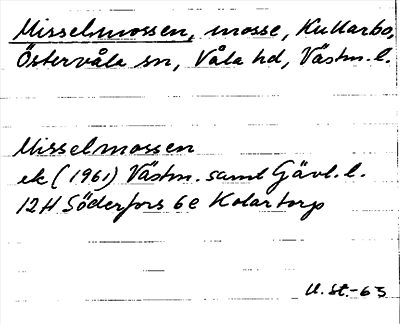 Misselmossen, mosse, Kullarbo,
Östervåla sn, Våla hd, Västm. l.
Misselmossen
ek (1961) Västm. samt Gävl. l.
12H Söderfors 6e Kolartorp
U. St.-63